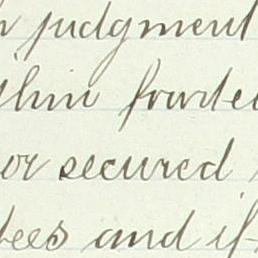 judgment
thin fourtee
or secured
tees and if